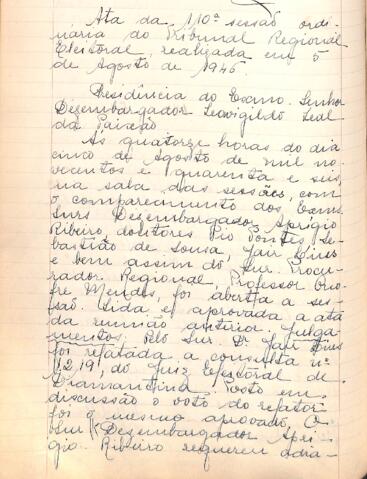 Ata da 110ª sessão ordi-
naria do Tribunal Regional
Eleitoral, realizada em 5
de Agosto de 1946.
Presidencia do Exmo. Senhor
Dezembargador Leovigildo Leal
da Paixão.
As quatorze horas do dia
cinco de Agosto de mil no-
vecentos e quarenta e seis,
na sala das sessões, com
o comparecimento dos Exms.
Surs Dezembargador Aprigio
Ribeiro, doutores Pio Pontes, Se-
bastião de Sousa, Jair Lins
e bem assim do Sur. Procu-
rador Regional, Professor Ono-
fre Mendes, foi aberta a ses-
são. Lida e aprovada a ata
da reunião anterior. Julga-
mentos. Pelo Sur. Dr. Jair Lins
foi relatada a consulta nº
1219, do Juiz Eleitoral de
Diamantina. Posto em
discussão o voto do relator
foi o mesmo aprovado. O
Sur Dezembargador Apri-
gio Ribeiro requereu adia-